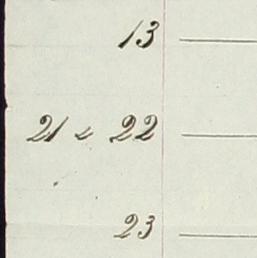 13
21 & 22
23